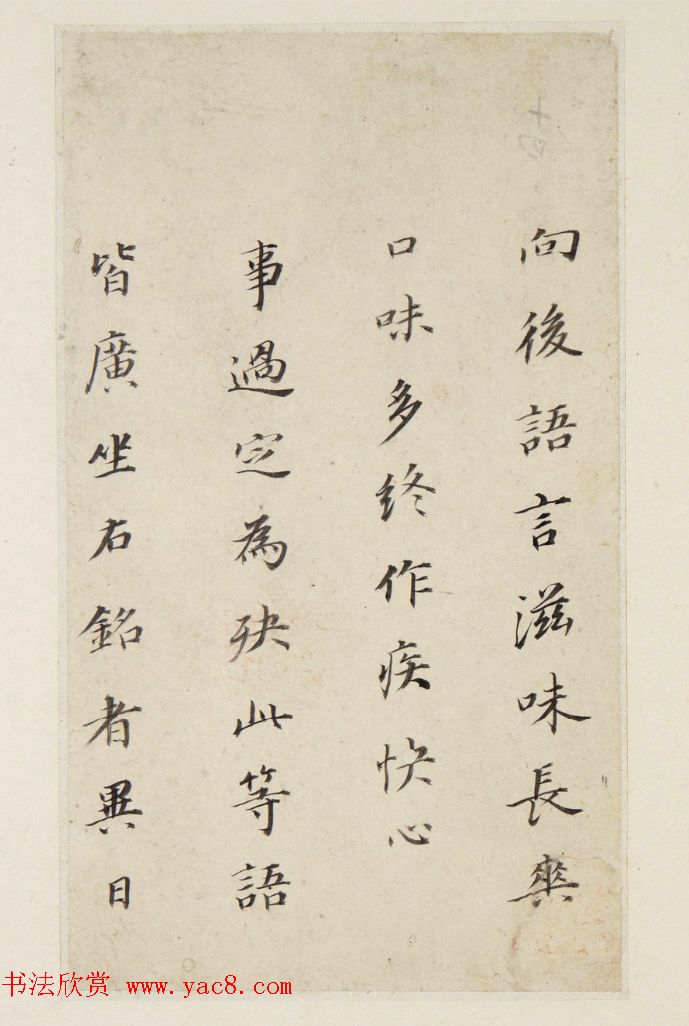 向後語言滋味長爽
口味多終作疾快心
事過定為殃此等語
皆廣坐右銘者異日
书法欣赏 www.yac8.com